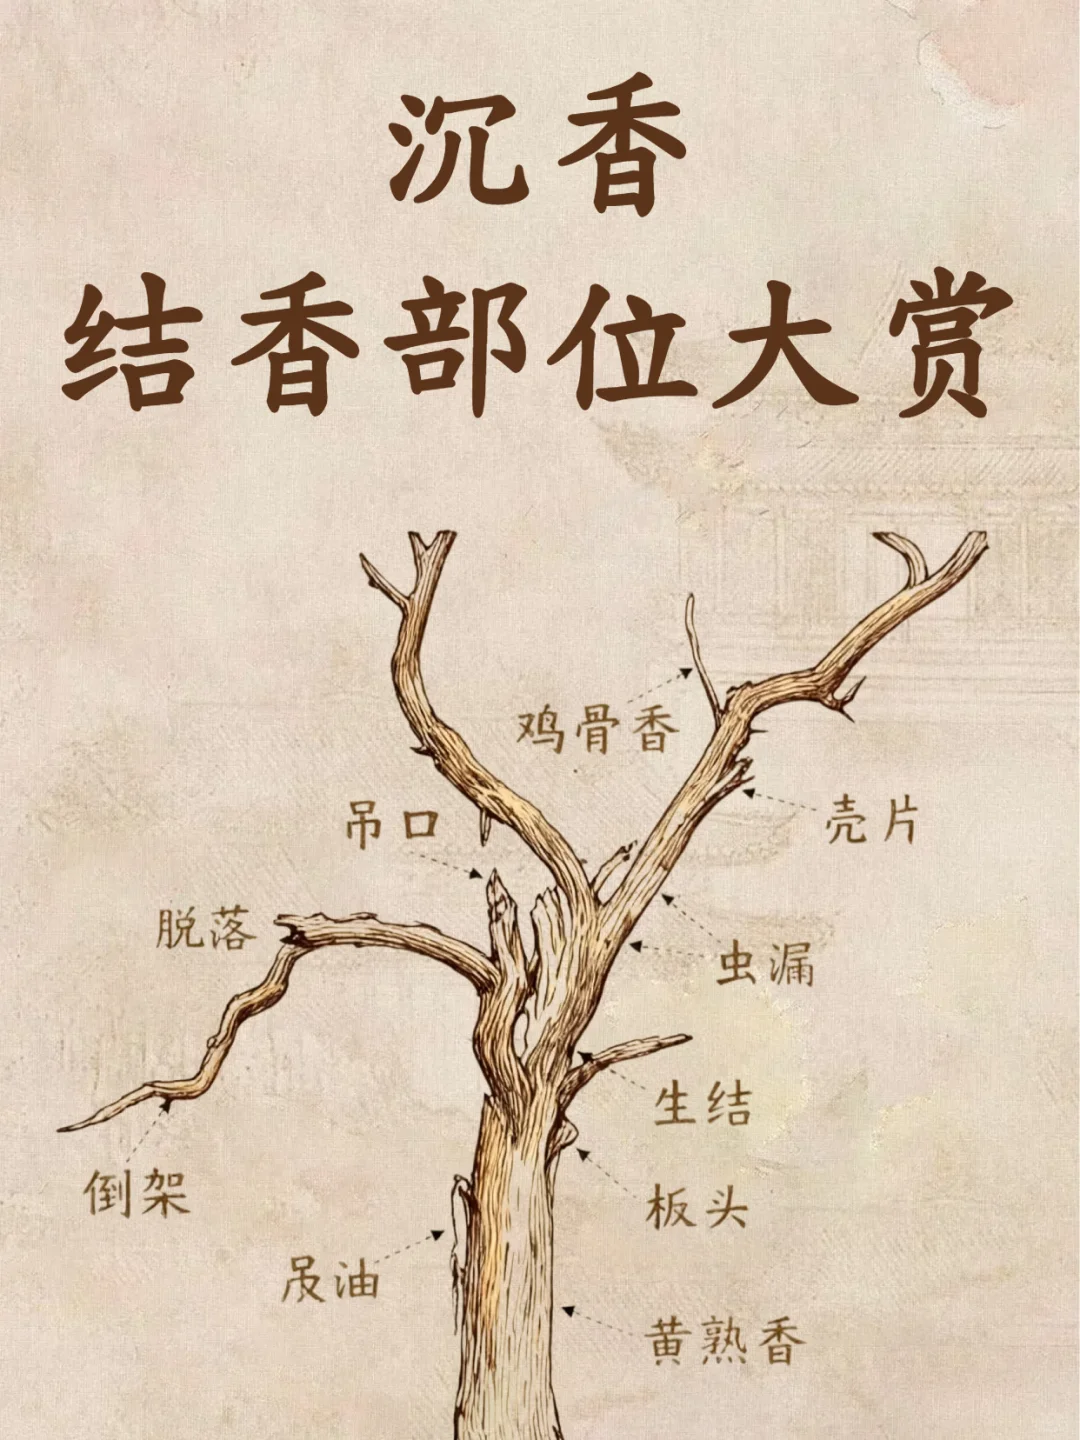 沉香
结香部位大赏
鸡骨香
吊口
壳片
脱落
虫漏
生结
倒架
板头
油
黄熟香